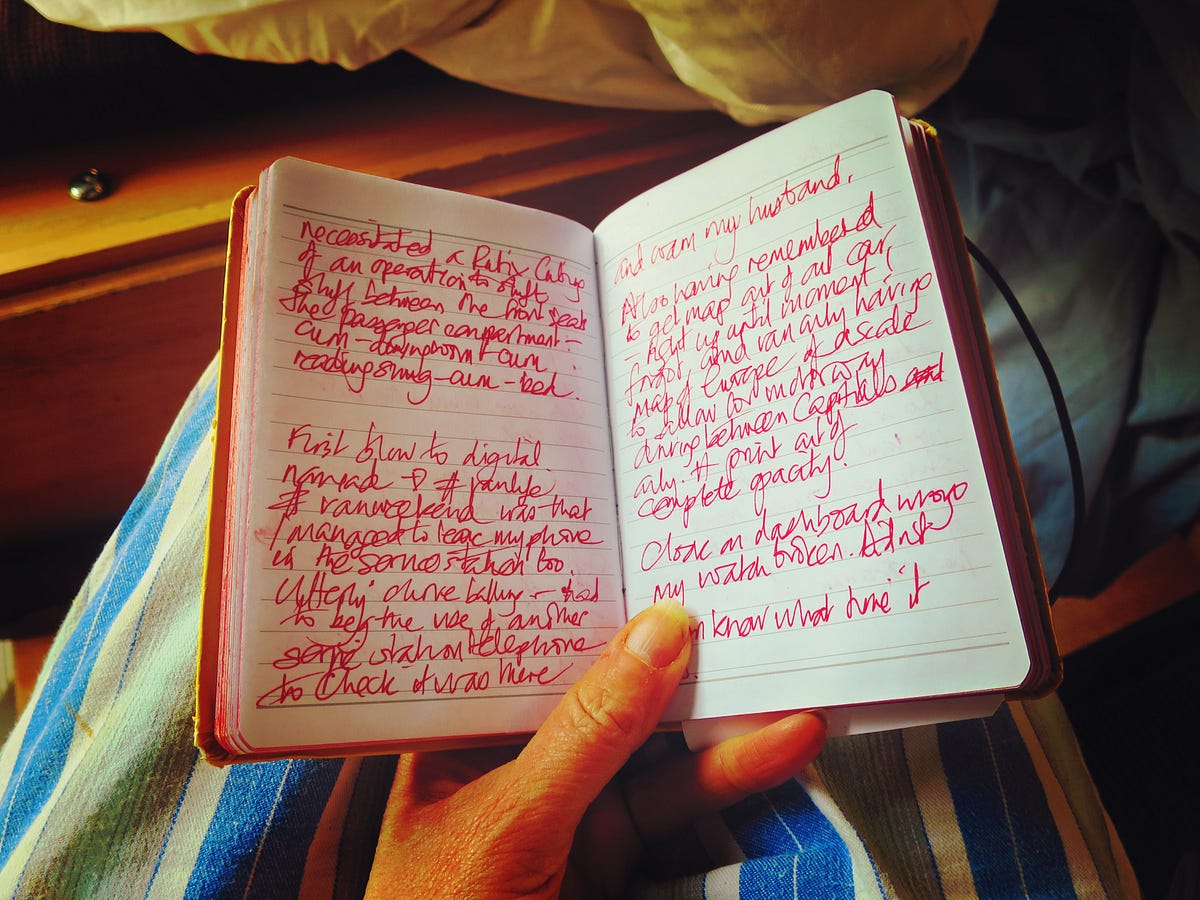 necessitated a Rubix Cubing
of an operation to shift
stuff between the front seats
the passenger compartment -
cum - dayroom - cum
reading snug - cum - bed.
First blow to digital
nomad
# vanweekend was that
I managed to leave my phone
in the service station too.
Utterly
to beg the use of another
service station telephone
to check it was there
and warn my husband.
Also having remembered
to get map out of our car,
- right up until moment I
forgot, and van only having
map of Europe of a scale
to follow for motorway
driving between Capitals
only. A print out of
complete opacity.
Clock on dashboard wrong
my watch broken. Did not
know what time it